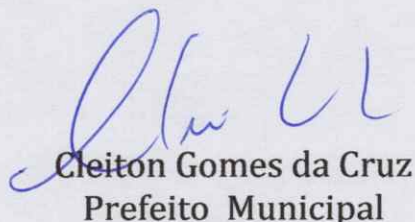 Cleiton Gomes da Cruz
Prefeito Municipal